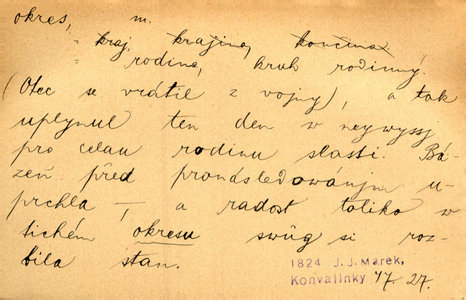 okres, m.
" kraj, krajina, končina.
" rodina, kruh rodinný.
(Otec se vrátil z vojny), a tak
uplynul ten den w neywyssj
pro celau rodinu slasti. Bá-
zeň před pronásledowánjm u-
prchla — a radost toliko w
tichém okresu swůg si roz-
bila stan.
1824 J. J. Marek,
Konvalinky 17. 27.